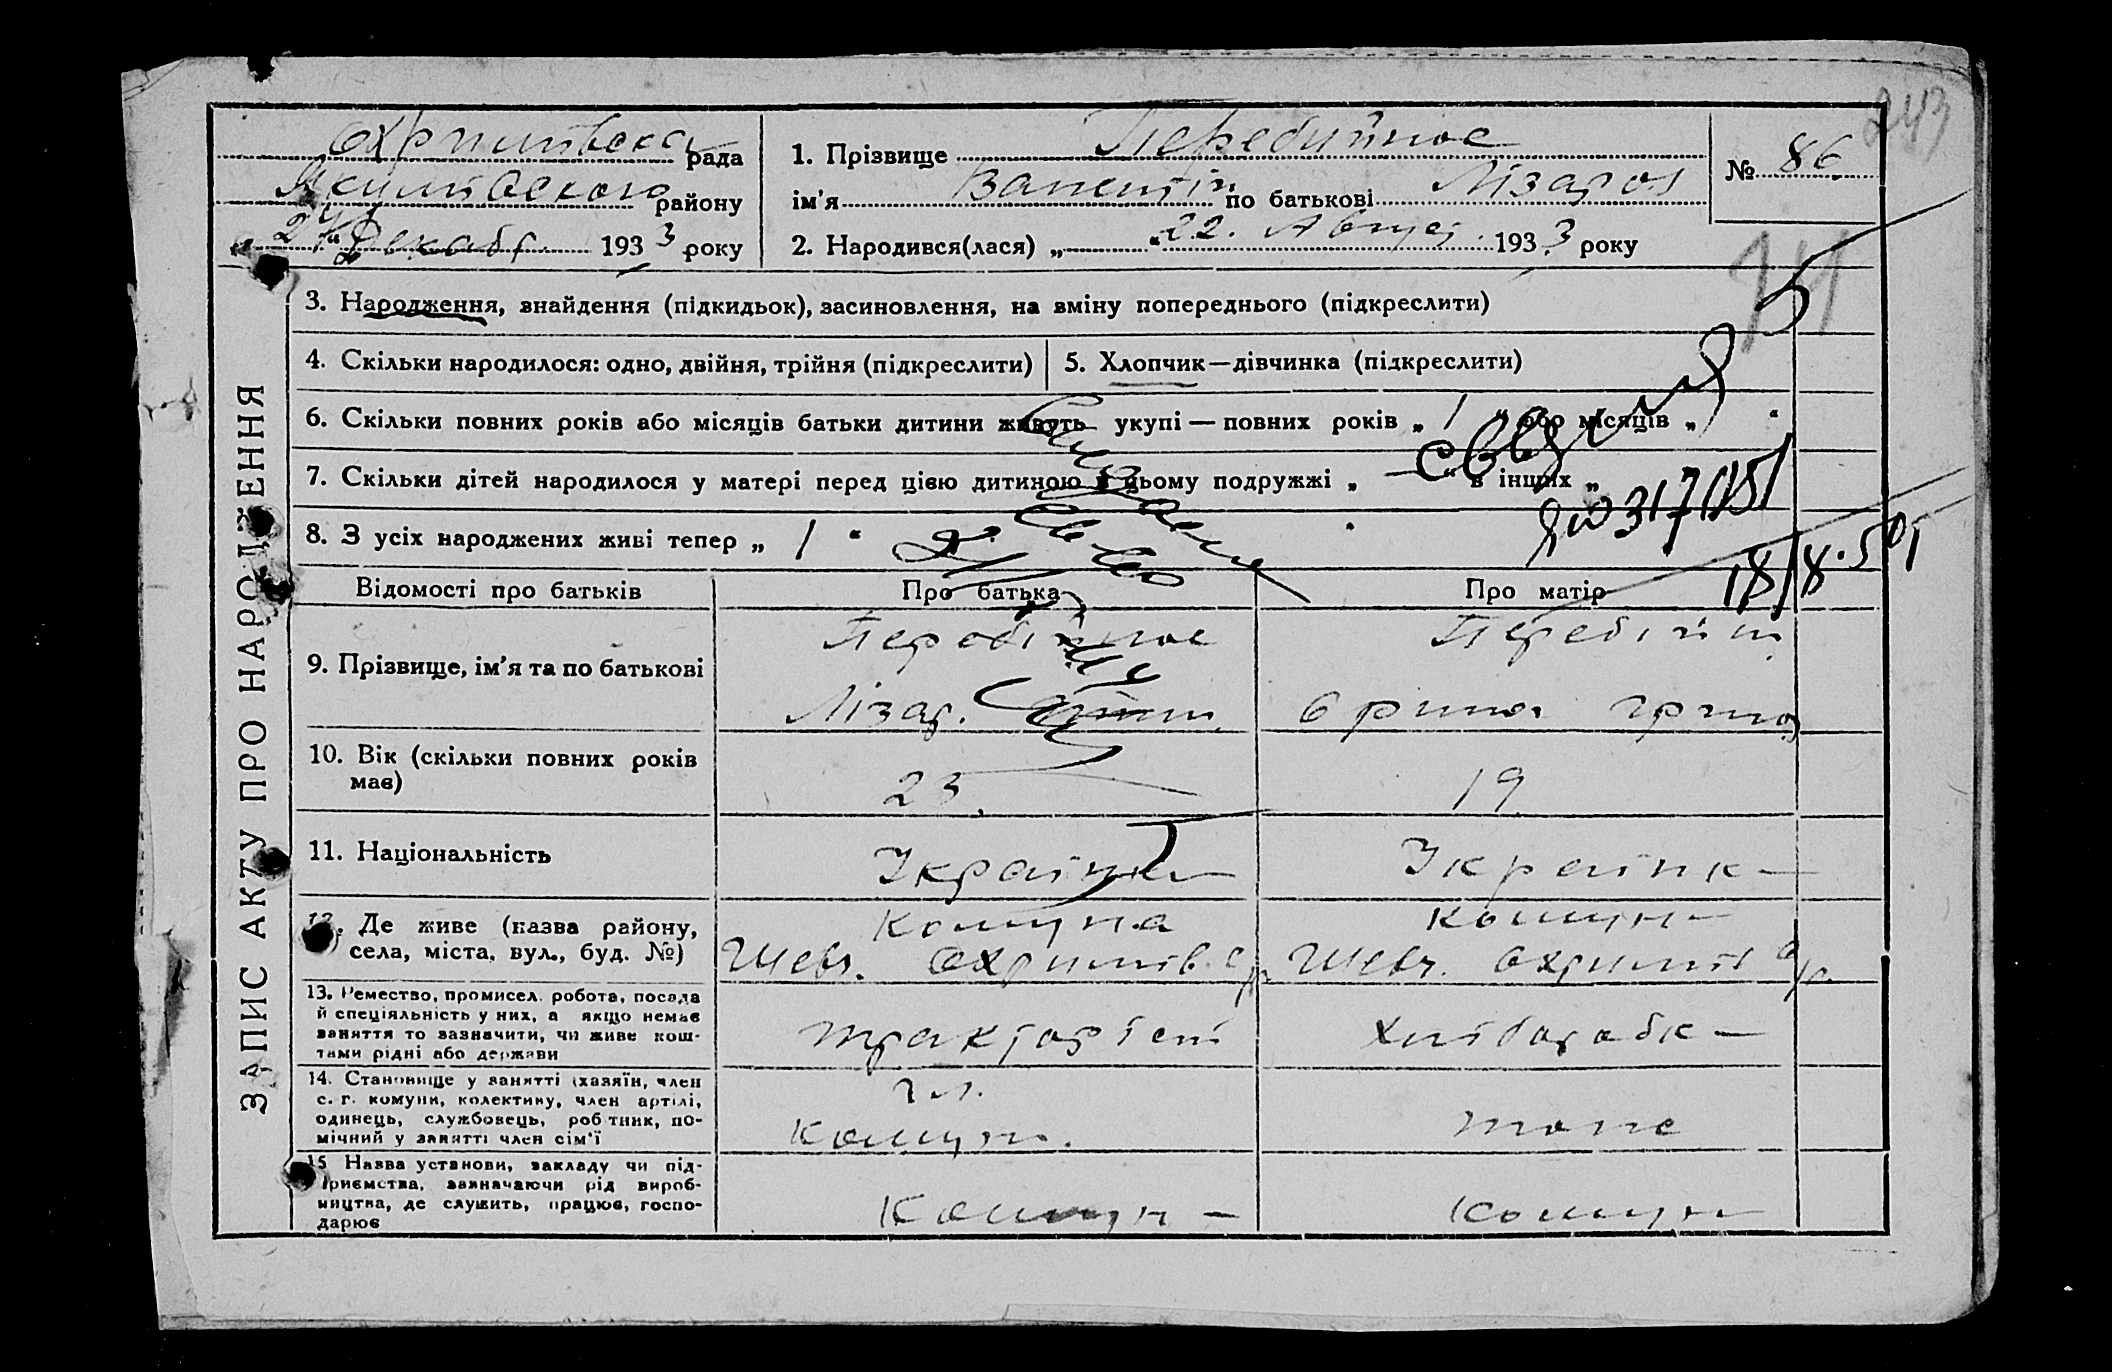 243
Охримівська рада
Якимівського району
„24“ Декабр. 1933 року
1. Прізвище Перебийнос
ім'я Валентін по батькові Лізаров
2. Народився(лася) „ “ 22. Август. 1933 року
№ 86
3. Народження, знайдення (підкидьок), засиновлення, на вміну попереднього (підкреслити)
4. Скільки народилося: одно, двійня, трійня (підкреслити)
5. Хлопчик—дівчинка (підкреслити)
6. Скільки повних років або місяців батьки дитини живуть укупі — повних років „ 1 “ або місяців „ “
7. Скільки дітей народилося у матері перед цією дитиною у цьому подружжі „ — “ в інших „ “
317051
8. З усіх народжених живі тепер „ 1 “
18/8.50
Відомості про батьків
Про батька
Про матір
9. Прізвище, ім'я та по батькові
Перебійнос
Лізар.
Перебійн
Орина Григ
10. Вік (скільки повних років має)
23.
19
11. Національність
Українец
Українк
12. Де живе (назва району, села, міста, вул., буд. №)
Комуна
Шевч. Охримів. с/р
Комун
Шевч. Охримів с/р.
13. Ремество, промисел, робота, посада
й спеціяльність у них, а якщо немає
заняття то зазначити, чи живе кош-
тами рідні або держави
тракторіст
Хліборобк
14. Становище у занятті (хазяїн, член
с.-г. комуни, колективу, член артілі,
одинець, службовець, робітник, по-
мічний у занятті член сім'ї
чл.
комун.
тоже
15 Назва установи, закладу чи під-
приємства, зазначаючи рід вироб-
ництва, де служить, працює, госпо-
дарює
Комун
Комун
ЗАПИС АКТУ ПРО НАРОДЖЕННЯ